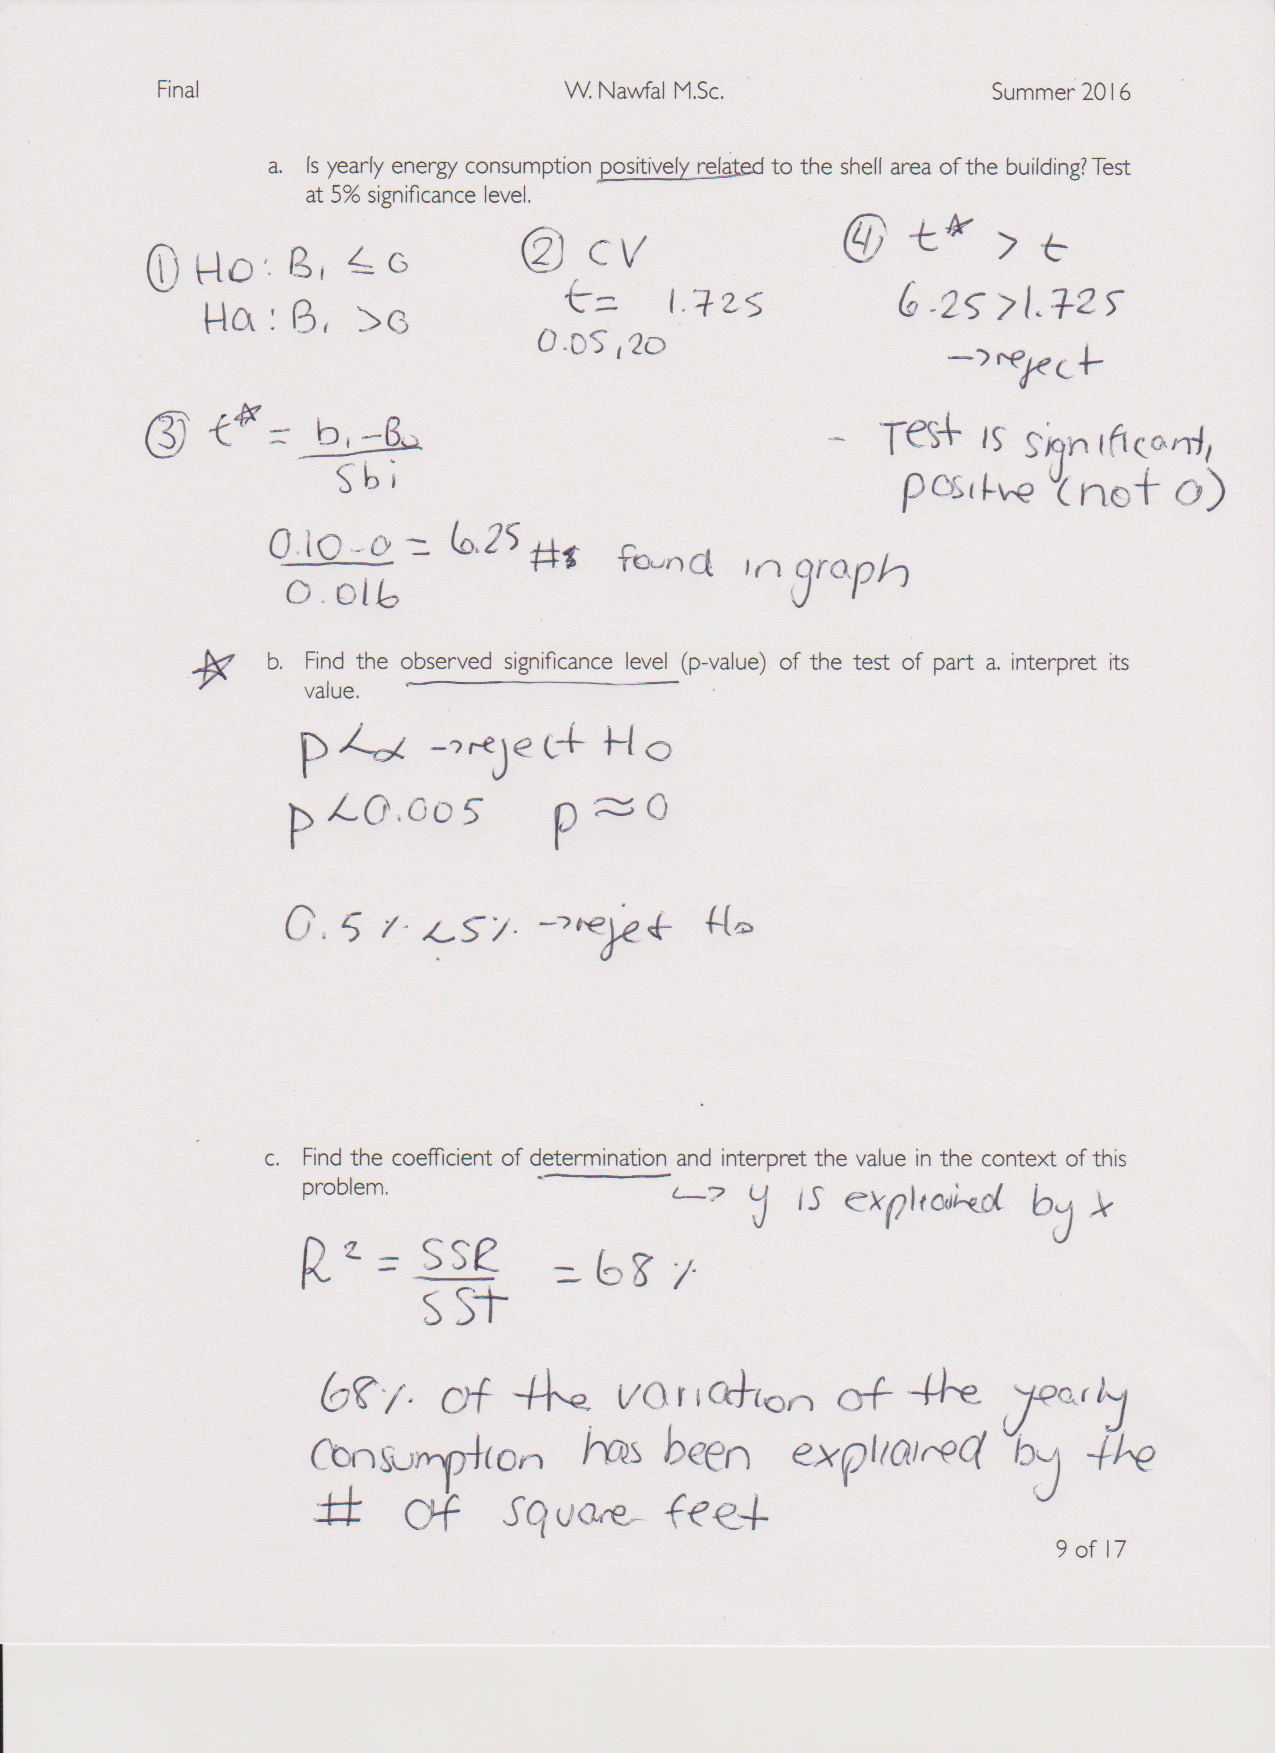 Final W. Nawfal M.Sc. Summer 2016
a. Is yearly energy consumption positively related to the shell area of the building? Test
at 5% significance level.
① Ho: B₁ ≤ 0
Ha: B₁ > 0
② CV
t= 1.725
0.05, 20
④ t* > t
6.25 > 1.725
→ reject
- Test is significant,
positive (not 0)
③ t* = b₁ - B₀
Sbi
0.10 - 0 = 6.25 #s found in graph
0.016
☆ b. Find the observed significance level (p-value) of the test of part a. interpret its
value.
p < α → reject Ho
p < 0.005 p ≈ 0
0.5% < 5% → rejet Ho
c. Find the coefficient of determination and interpret the value in the context of this
problem.
↳ y is expliained by x
R² = SSR = 68%
SST
68% of the variation of the yearly
consumption has been expliained by the
# of square feet
9 of 17